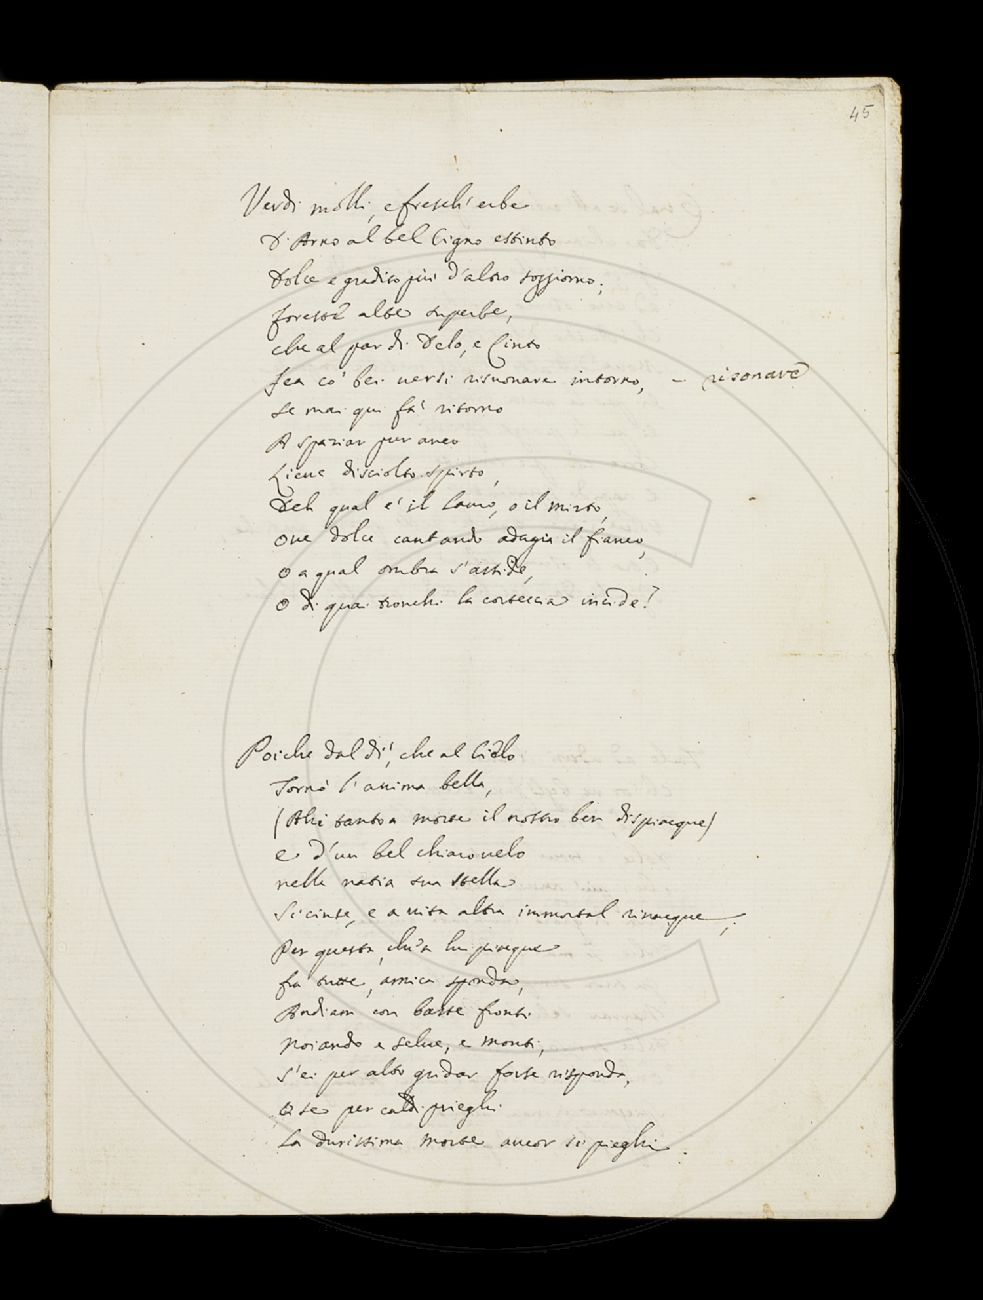 45
Verdi molli, e fresch'erbe
D'Arno al bel Cigno estinto
Dolce e gradito più d'altro soggiorno;
forest' alte superbe,
che al par di Delo, e Cinto
fea co' bei versi risuonare intorno, – risonare
se mai qui fa' ritorno
A spaziar pur anco
Lieve disciolto spirto,
Deh qual e' il lauro, o il mirto,
ove dolce cantando adagia il fianco,
o a qual ombra s'asside,
O di quai tronchi la corteccia incide?
Poiche dal di', che al Cielo
Tornò l'anima bella,
(Ahi tanto a morte il nostro ben dispiacque)
e d'un bel chiaro velo
nella natia sua stella
Si cinse, e a vita altra immortal rinacque;
Per questa, ch'a lui piacque
fra tutte, amica sponda,
Andiam con basse fronti
noiando e selve, e monti,
s'ei per alto gridar forse risponda,
O se per caldi prieghi
La durissima morte ancor si pieghi.